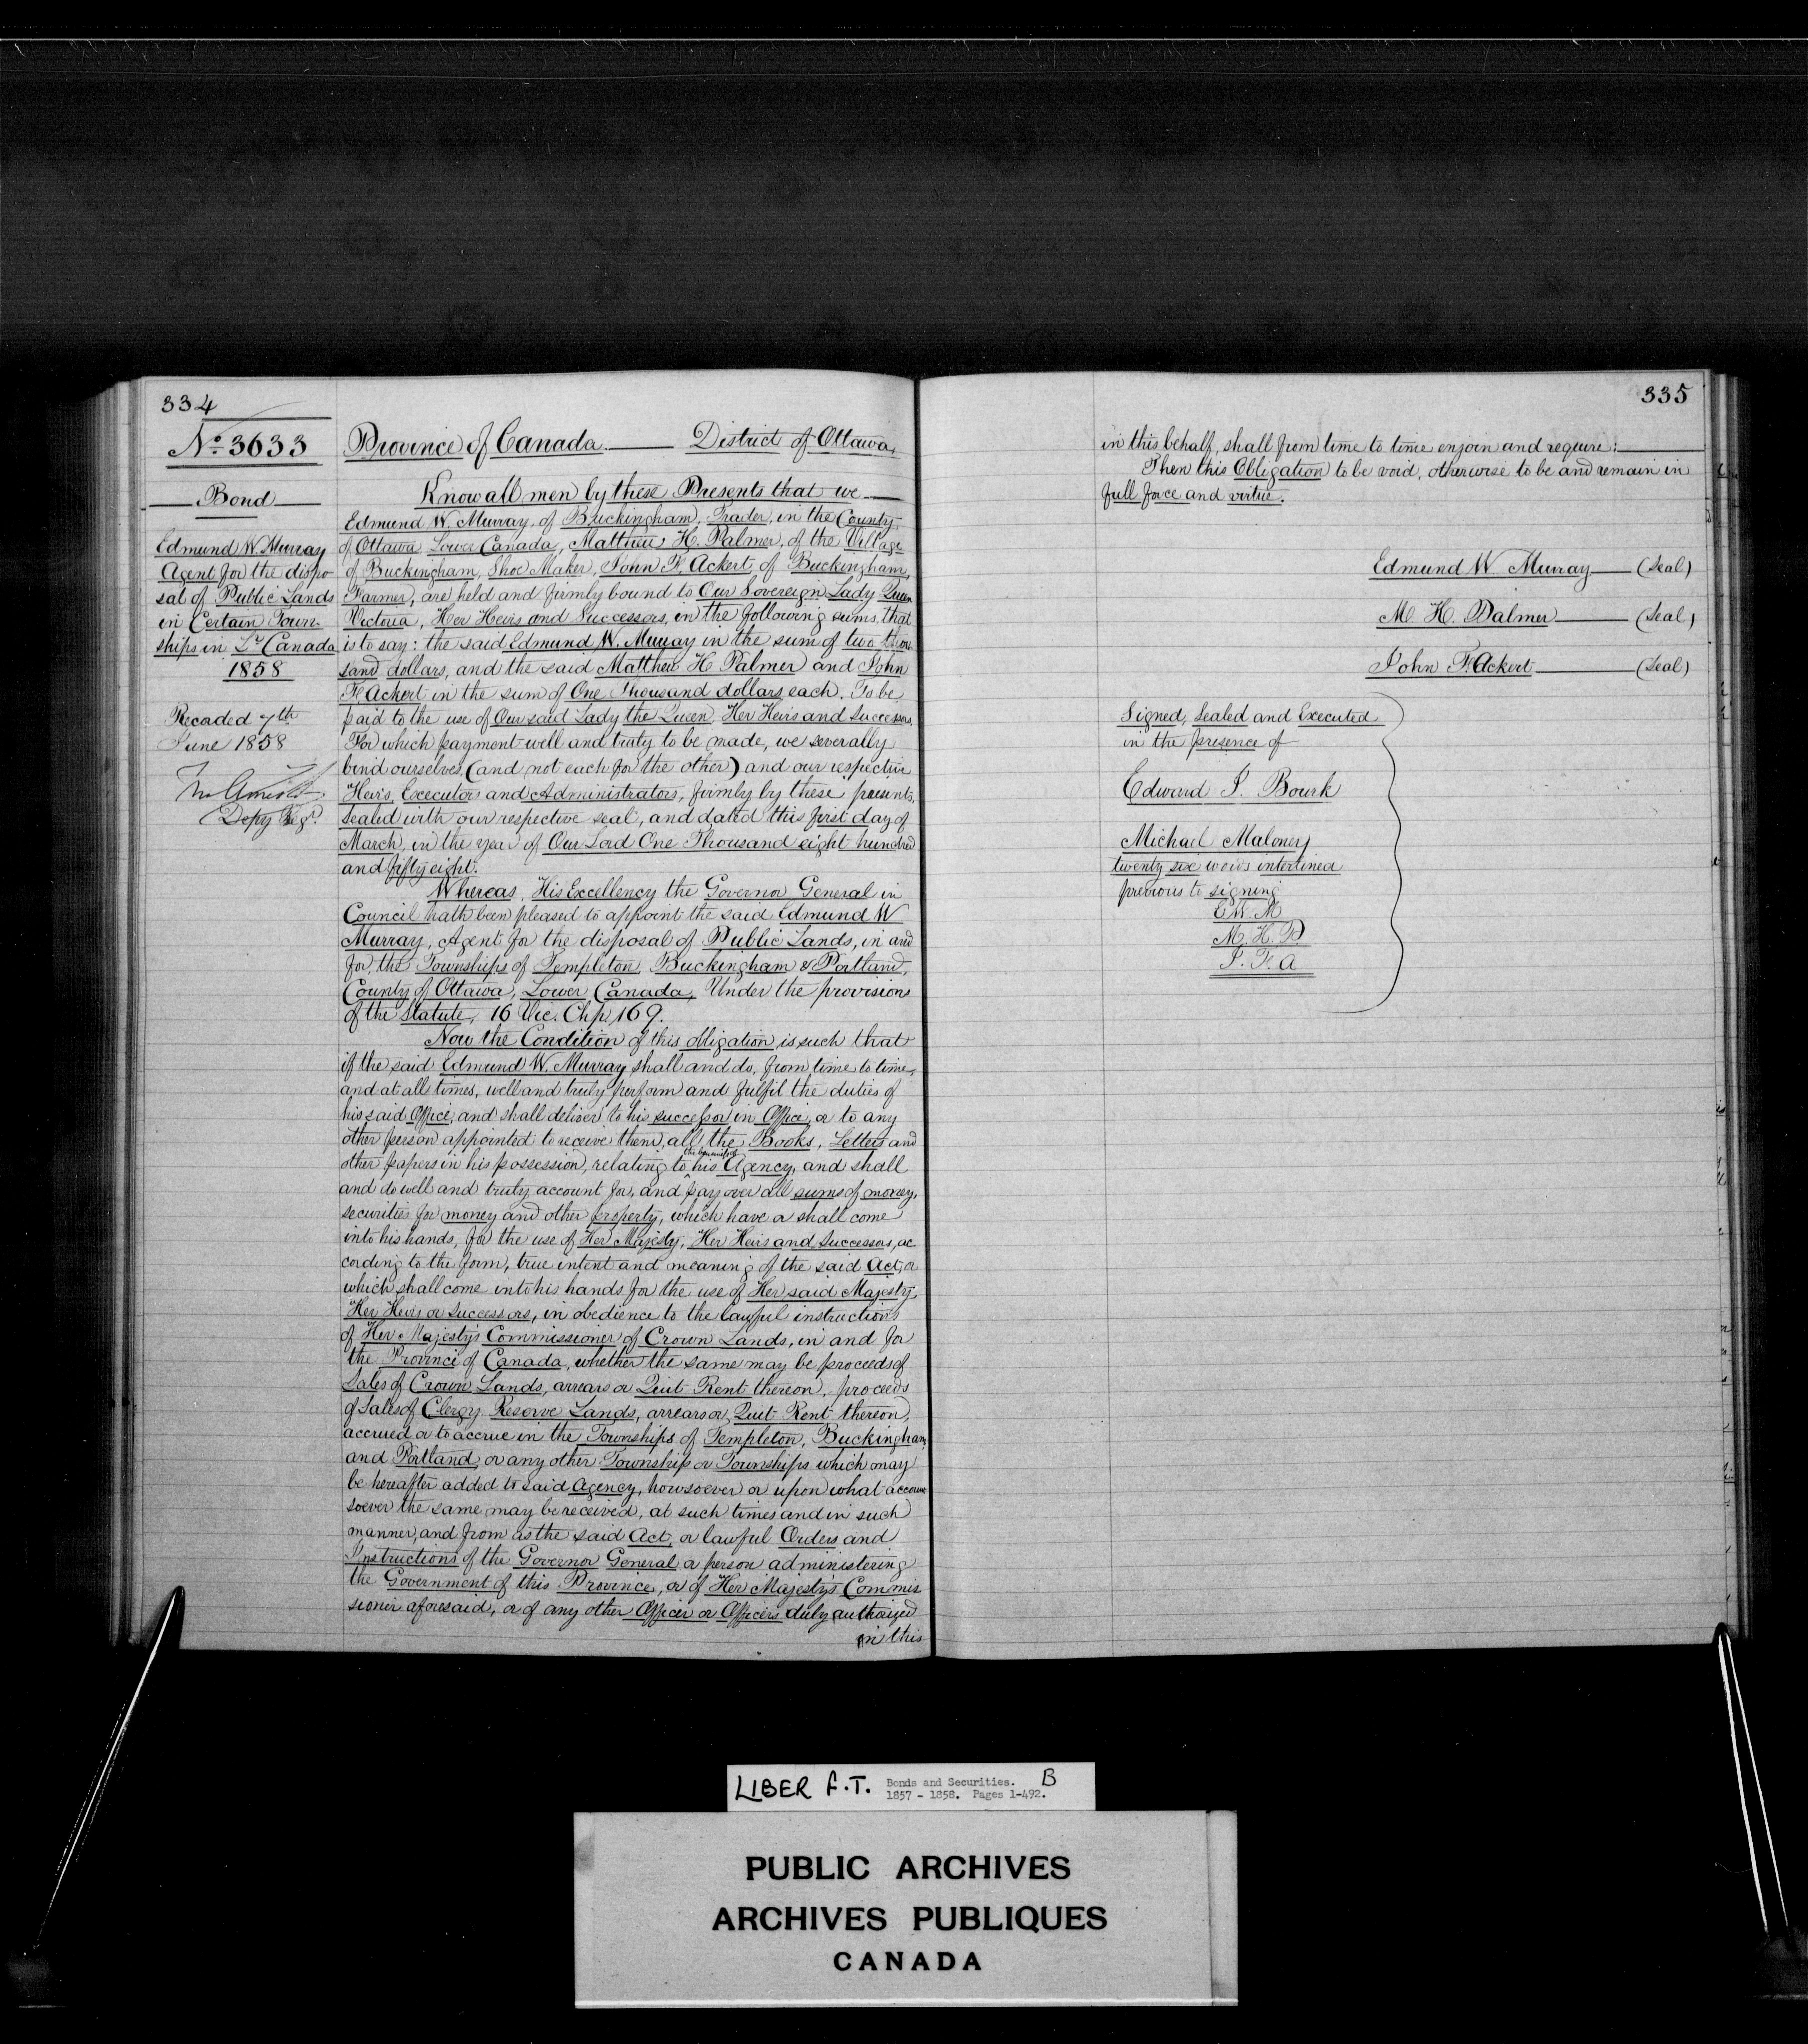 334
No. 3633
Bond
Edmund W. Murray
Agent for the dispo-
sal of Public Lands
in Certain Town-
ships in Lr Canada
1858
Recorded 7th
June 1858
Depy Regr.
Province of Canada. District of Ottawa,
Know all men by these Presents that we
Edmund W. Murray, of Buckingham, Trader, in the County
of Ottawa Lower Canada, Matthew H. Palmer, of the Village
of Buckingham, Shoe Maker, John F. Ackert of Buckingham,
Farmer, are held and firmly bound to Our Sovereign Lady Queen
Victoria, Her Heirs and Successors, in the following sums, that
is to say: the said Edmund W. Murray in the sum of two thou-
sand dollars, and the said Matthew H. Palmer and John
F. Ackert in the sum of One Thousand dollars each. To be
paid to the use of Our said Lady the Queen, Her Heirs and Successors.
For which payment well and truly to be made, we severally
bind ourselves, (and not each for the other) and our respective
Heirs, Executors and Administrators, firmly by these presents,
sealed with our respective seal, and dated this first day of
March, in the year of Our Lord One Thousand eight hundred
and fifty eight.
Whereas, His Excellency the Governor General in
Council hath been pleased to appoint the said Edmund W
Murray, Agent for the disposal of Public Lands, in and
for, the Townships of Templeton, Buckingham & Portland,
County of Ottawa, Lower Canada, Under the provisions
of the Statute, 16 Vic. Chp. 169.
Now the Condition of this obligation, is such that
if the said Edmund W. Murray shall and do, from time to time,
and at all times, well and truly perform and fulfil the duties of
his said Office, and shall deliver to his successor in Office, or to any
other person appointed to receive them, all the Books, Letters and
other papers in his possession, relating to his Agency, and shall
and do well and truly account for, and pay over all sums of money,
securities for money and other property, which have or shall come
into his hands, for the use of Her Majesty, Her Heirs and Successors, ac
cording to the form, true intent and meaning of the said Act, or
which shall come into his hands for the use of Her said Majesty,
Her Heirs or Successors, in obedience to the lawful instructions
of Her Majesty's Commissioner of Crown Lands, in and for
the Province of Canada, whether the same may be proceeds of
Sales of Crown Lands, arrears or Quit Rent thereon, proceeds
of Sales of Clergy Reserve Lands, arrears or Quit Rent thereon,
accrued or to accrue in the Townships of Templeton, Buckingham
and Portland, or any other Township or Townships which may
be hereafter added to said Agency, howsoever or upon what account
soever the same may be received, at such times and in such
manner, and from as the said Act, or lawful Orders and
Instructions of the Governor General or person administering
the Government of this Province, or of Her Majesty's Commis
sioner aforesaid, or of any other Officer or Officers duly authorized
in this
335
in this behalf, shall from time to time enjoin and require:
Then this Obligation to be void, otherwise to be and remain in
full force and virtue.
Edmund W. Murray (Seal)
M. H. Palmer (Seal)
John F. Ackert (Seal)
Signed, Sealed and Executed
in the presence of
Edward J. Bourk
Michael Maloney
twenty six words interlined
previous to signing
E. W. M
M. H. P.
J. F. A
LIBER F.T. Bonds and Securities. B
1857 - 1858. Pages 1-492.
PUBLIC ARCHIVES
ARCHIVES PUBLIQUES
CANADA